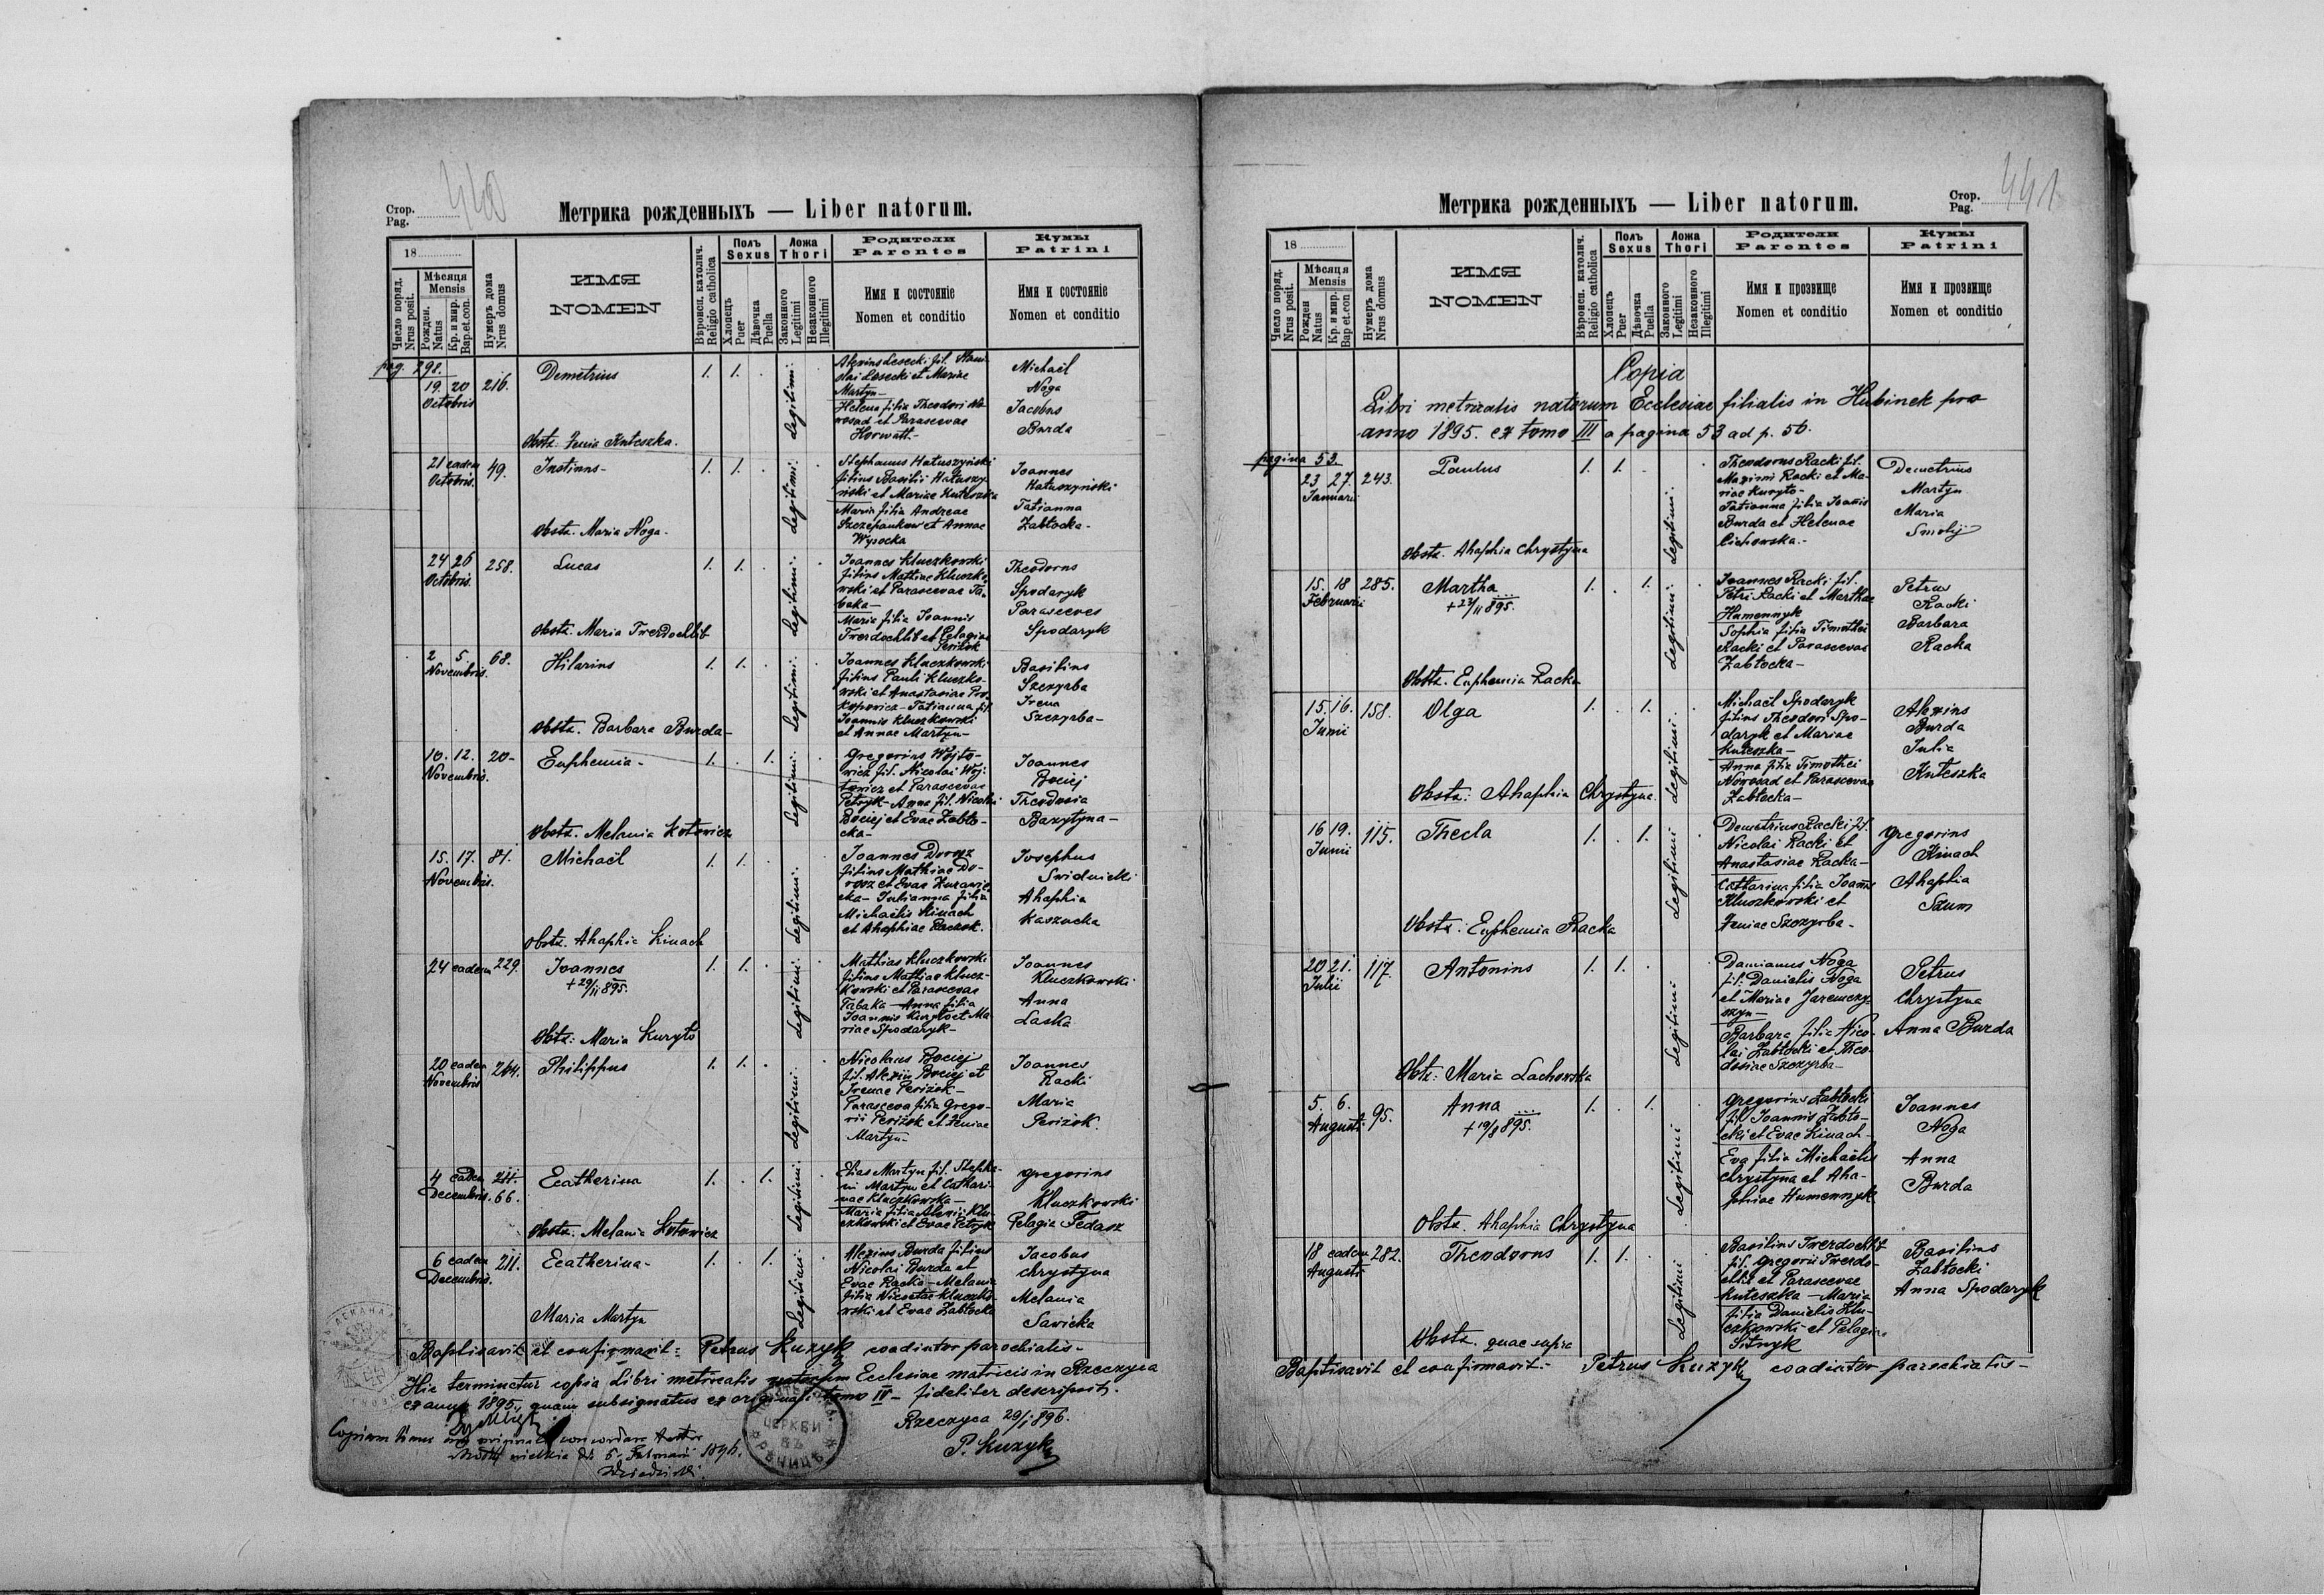 440
Стор.
Pag.
Метрика рожденныхъ — Liber natorum.
18
Число поряд.
Nrus posit.
Мѣсяца
Mensis
Рожден.
Natus
Кр. и мир.
Bap.et.con.
Нумеръ дома
Nrus domus
ИМЯ
NOMEN
Вѣроисп. католич.
Religio catholica
Полъ
Sexus
Хлопецъ
Puer
Дѣвочка
Puella
Ложа
Thori
Законного
Legitimi
Незаконного
Illegitimi
Родители
Parentes
Имя и состояніе
Nomen et conditio
Кумы
Patrini
Имя и состояніе
Nomen et conditio
pag. 298.
19. 20 Octobris 216. Demetrius 1. 1. Legitimi
Alexius Lesecki fil.
Lesecki et Mariae
Martyn-
Helena filia Theodori No-
wosad et Parascevae
Horwatt.-
Michaël
Noga
Jacobus
Burda
Obstz. Kuteszka.
21 eadem Octobris. 49. Justinus- 1. 1. Legitimi
Stephanus Hatuszyński
filius Basilii Hatuszy-
ński et Mariae Kuteszka
Maria filia Andreae
Szczepankow et Annae
Wysocka
Joannes
Hatuszyński
Tatianna
Zabłocka-
Obstz. Maria Noga-
24 26 Octobris. 258. Lucas 1. 1. Legitimi
Joannes Kluczkowski
filius Mathiae Kluczko-
wski et Parascevae Ta-
baka-
Maria filia Joannis
Twerdochlib et Pelagiae
Perižok
Theodorus
Spodaryk
Parasceves
Spodaryk
Obstz. Maria Twerdochlib
2 5. Novembris. 68. Hilarius 1. 1. Legitimi
Joannes Kluczkowski
filius Pauli Kluczko-
wski et Anastasiae Pro-
kopowicz - Tatianna fil.
Joannis Kluczkowski
et Annae Martyn-
Basilius
Szczyrba
Irena
Szczyrba-
Obstz. Barbara Burda-
10. 12. Novembris. 20- Euphemia- 1. 1. Legitimi
Gregorius Wojto-
wicz fil. Nicolai Woj-
towicz et Parascevae
Petryk - Anna fil. Nicolai
Bociej et Evae Zabło-
cka-
Joannes
Bociej
Theodosia
Bazytyna-
Obstz. Melania Kotowicz
15. 17. Novembris. 81. Michaël 1. 1. Legitimi
Joannes Dorosz
filius Mathiae Do-
rosz et Evae
cka - Julianna filia
Michaëlis Kinach
et Ahaphiae Raczok.
Josephus
Swidnicki
Ahaphia
Kaszucka
Obstz. Ahaphia Kinach
24 eadem 229. Joannes 1. 1. Legitimi
+ 29/11 895.
Mathias Kluczkowski
filius Mathiae Klucz-
kowski et Parascevae
Tabaka - Anna filia
Joannis Kuryło et Ma-
riae Spodaryk-
Joannes
Kluczkowski
Anna
Laska
Obstz: Maria Kuryło
20 eadem Novembris 264. Philippus 1. 1. Legitimi
Nicolaus Bociej
fil. Alexii Bociej et
Irenae Perižok-
Parasceva filia Grego-
rii Perižok et Xeniae
Martyn-
Joannes
Racki
Maria
Perižok.
4 eadem Decembris. 211. 66. Ecatherina 1. 1. Legitimi
Elias Martyn fil. Stepha-
ni Martyn et Cathari-
nae Kluczkowska-
Maria filia Alexii Klu-
czkowski et Evae Petryk
Gregorius
Kluczkowski
Pelagia Fedasz
Obstz. Melania Kotowicz
6 eadem Decembris. 211. Ecatherina- 1. 1. Legitimi
Alexius Burda filius
Nicolai Burda et
Evae Racka - Melania
filia Nicetae Kluczko-
wski et Evae Zabłocka
Jacobus
Chrystyna
Melania
Sawicka
Maria Martyn
Baptisavit et confirmavit: Petrus Kuzyk coadiutor parochialis-
Hic terminetur copia Libri metricalis natorum Ecclesiae matricis in Rzeczyca
ex anno 1895., quam subsignatus ex originali tomo IV- fideliter descripsit.
Rzeczyca 29/1 896.
P. Kuzyk
Copiam hanc cum originali concordare testor
wielkie d. 5. Februarii 1896.
ЦЕРКВИ
441
Метрика рожденныхъ — Liber natorum.
Стор.
Pag.
18
Число поряд.
Nrus posit.
Мѣсяця
Mensis
Рожден
Natus
Кр. и мир.
Bap et.con
Нумеръ дома
Nrus domus
ИМЯ
NOMEN
Вѣроисп. католич.
Religio catholica
Полъ
Sexus
Хлопецъ
Puer
Дѣвочка
Puella
Ложа
Thori
Законного
Legitimi
Незаконного
Illegitimi
Родители
Parentes
Имя и прозвище
Nomen et conditio
Кумы
Patrini
Имя и прозвище
Nomen et conditio
Copia
Libri metricalis natorum Ecclesiae filialis in Hubinek pro
anno 1895. ex tomo III a pagina 53 ad p. 56.
pagina 53.
23 27. Januarii 243. Paulus 1. 1. Legitimi
Theodorus Racki fil.
Maximi Racki et Ma-
riae Kuryło-
Tatianna filia Joannis
Burda et Helenae
Cichowska.-
Demetrius
Martyn
Maria
Smolij
Obstz. Ahaphia Chrystyna
15. 18 Februarii 285. Martha 1. 1. Legitimi
+ 23/11 895.
Joannes Racki fil.
Petri Racki et Marthae
Humennyk
Sophia filia Timothei
Racki et Parascevae
Zabłocka-
Petrus
Racki
Barbara
Racka
Obstz. Euphemia Racka
15. 16. Junii 158. Olga 1. 1. Legitimi
Michaël Spodaryk
filius Theodori Spo-
daryk et Mariae
Kuteszka-
Anna filia Timothei
Nowosad et Parascevae
Zabłocka-
Alexius
Burda
Julia
Kuteszka
Obstz: Ahaphia Chrystyna.
16 19. Junii 115. Thecla 1. 1. Legitimi
Demetrius Racki fil.
Nicolai Racki et
Anastasiae Racka-
Catharina filia Joannis
Kluczkowski et
Xeniae Szczyrba-
Gregorius
Kinach
Ahaphia
Szum
Obstz: Euphemia Racka
20 21. Julii 117. Antonius 1. 1. Legitimi
Damianus Noga
fil. Danielis Noga
et Mariae Jaremczy-
szyn-
Barbara filia Nico-
lai Zabłocki et Theo-
dosiae Szczyrba-
Petrus
Chrystyna
Anna Burda
Obstz: Maria Lachowska
5. 6. Augusti 95. Anna 1. 1. Legitimi
+ 19/8 895.
Gregorius Zabłocki
fil. Joannis Zabło-
cki et Evae Kinach-
Eva filia Michaëlis
Chrystyna et Aha-
phiae Humennyk
Joannes
Noga
Anna
Burda
Obstz. Ahaphia Chrystyna
18 eadem Augusti 282. Theodorus 1. 1. Legitimi
Basilius Twerdochlib
fil. Gregorii Twerdo-
chlib et Parascevae
Kuteszka - Maria
filia Danielis Klu-
czkowski et Pelagiae
Sitnyk
Basilius
Zabłocki
Anna Spodaryk
Obstz. quae supra
Baptisavit et confirmavit- Petrus Kuzyk coadiutor parochialis-